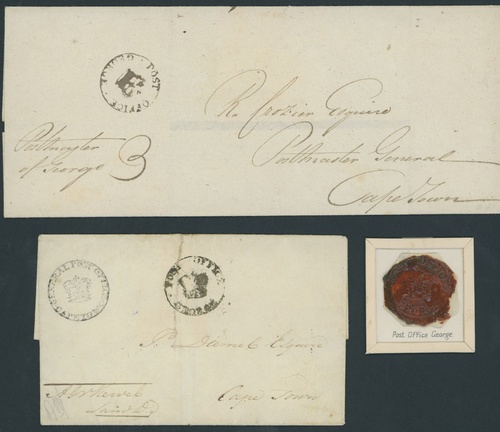 GEORGE · POST OFFICE ·
Postmaster
of George
R. Crozier Esquire
Postmaster General
Cape Town
GENERAL POST OFFICE
POST OFFICE
GEORGE
Esquire
Cape Town
Post Office George.